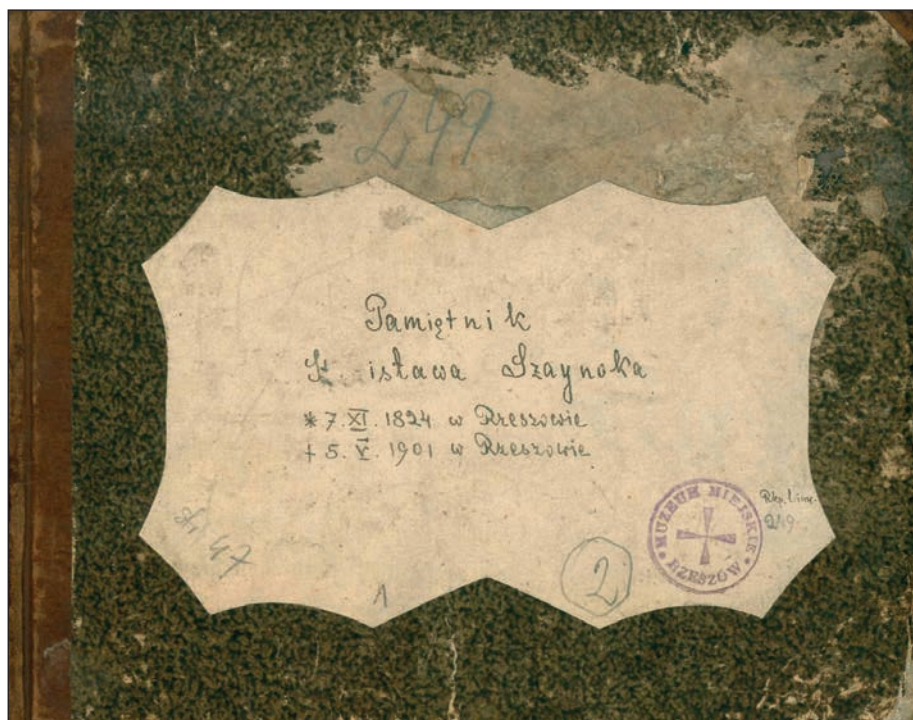 249
Pamiętnik
isława Szaynoka
* 7. XI. 1824 w Rzeszowie
+ 5. V. 1901 w Rzeszowie
MUZEUM MIEJSKIE
RZESZÓW
249
47
1
2